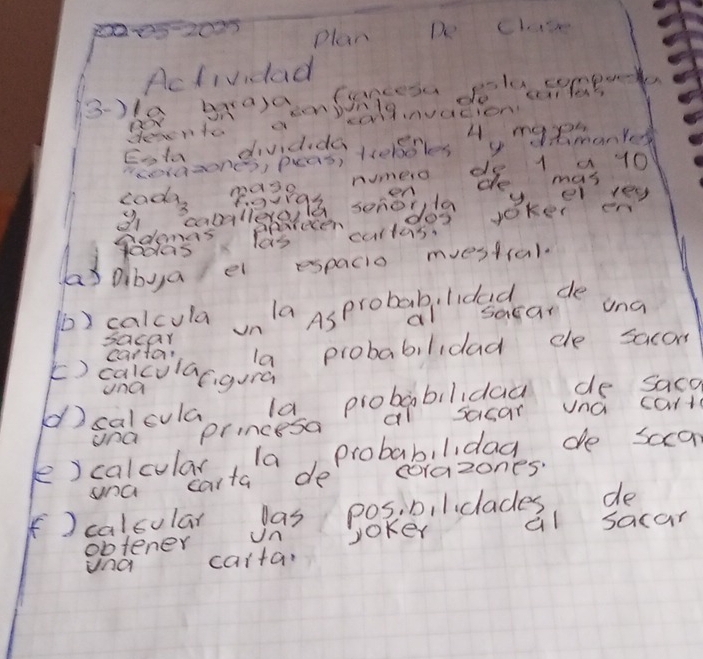 22-05-2025
Plan De Clase
Actividad
3-) la baraja francesa esta compuesta
por un conjunto de cartas
a calg.invacion:
Esta dividida en 4 mazos
corazones, picas, treboles y diamantes
cada maso numero de 1 a 10
y 3 figuras en de mas
el caballero, la señorita y el rey
Ademas aparecen dos joker en
todas las cartas.
a) Dibuja el espacio muestral.
b) calcula la probabilidad de
sacar un As al sacar una
carta.
c) calcula la probabilidad de sacar
una figura
d) calcula la probabilidad de saca
una princesa al sacar una cart
e) calcular la probabilidad de saca
una carta de corazones.
f) calcular las posibilidades de
obtener un joker al sacar
una carta.